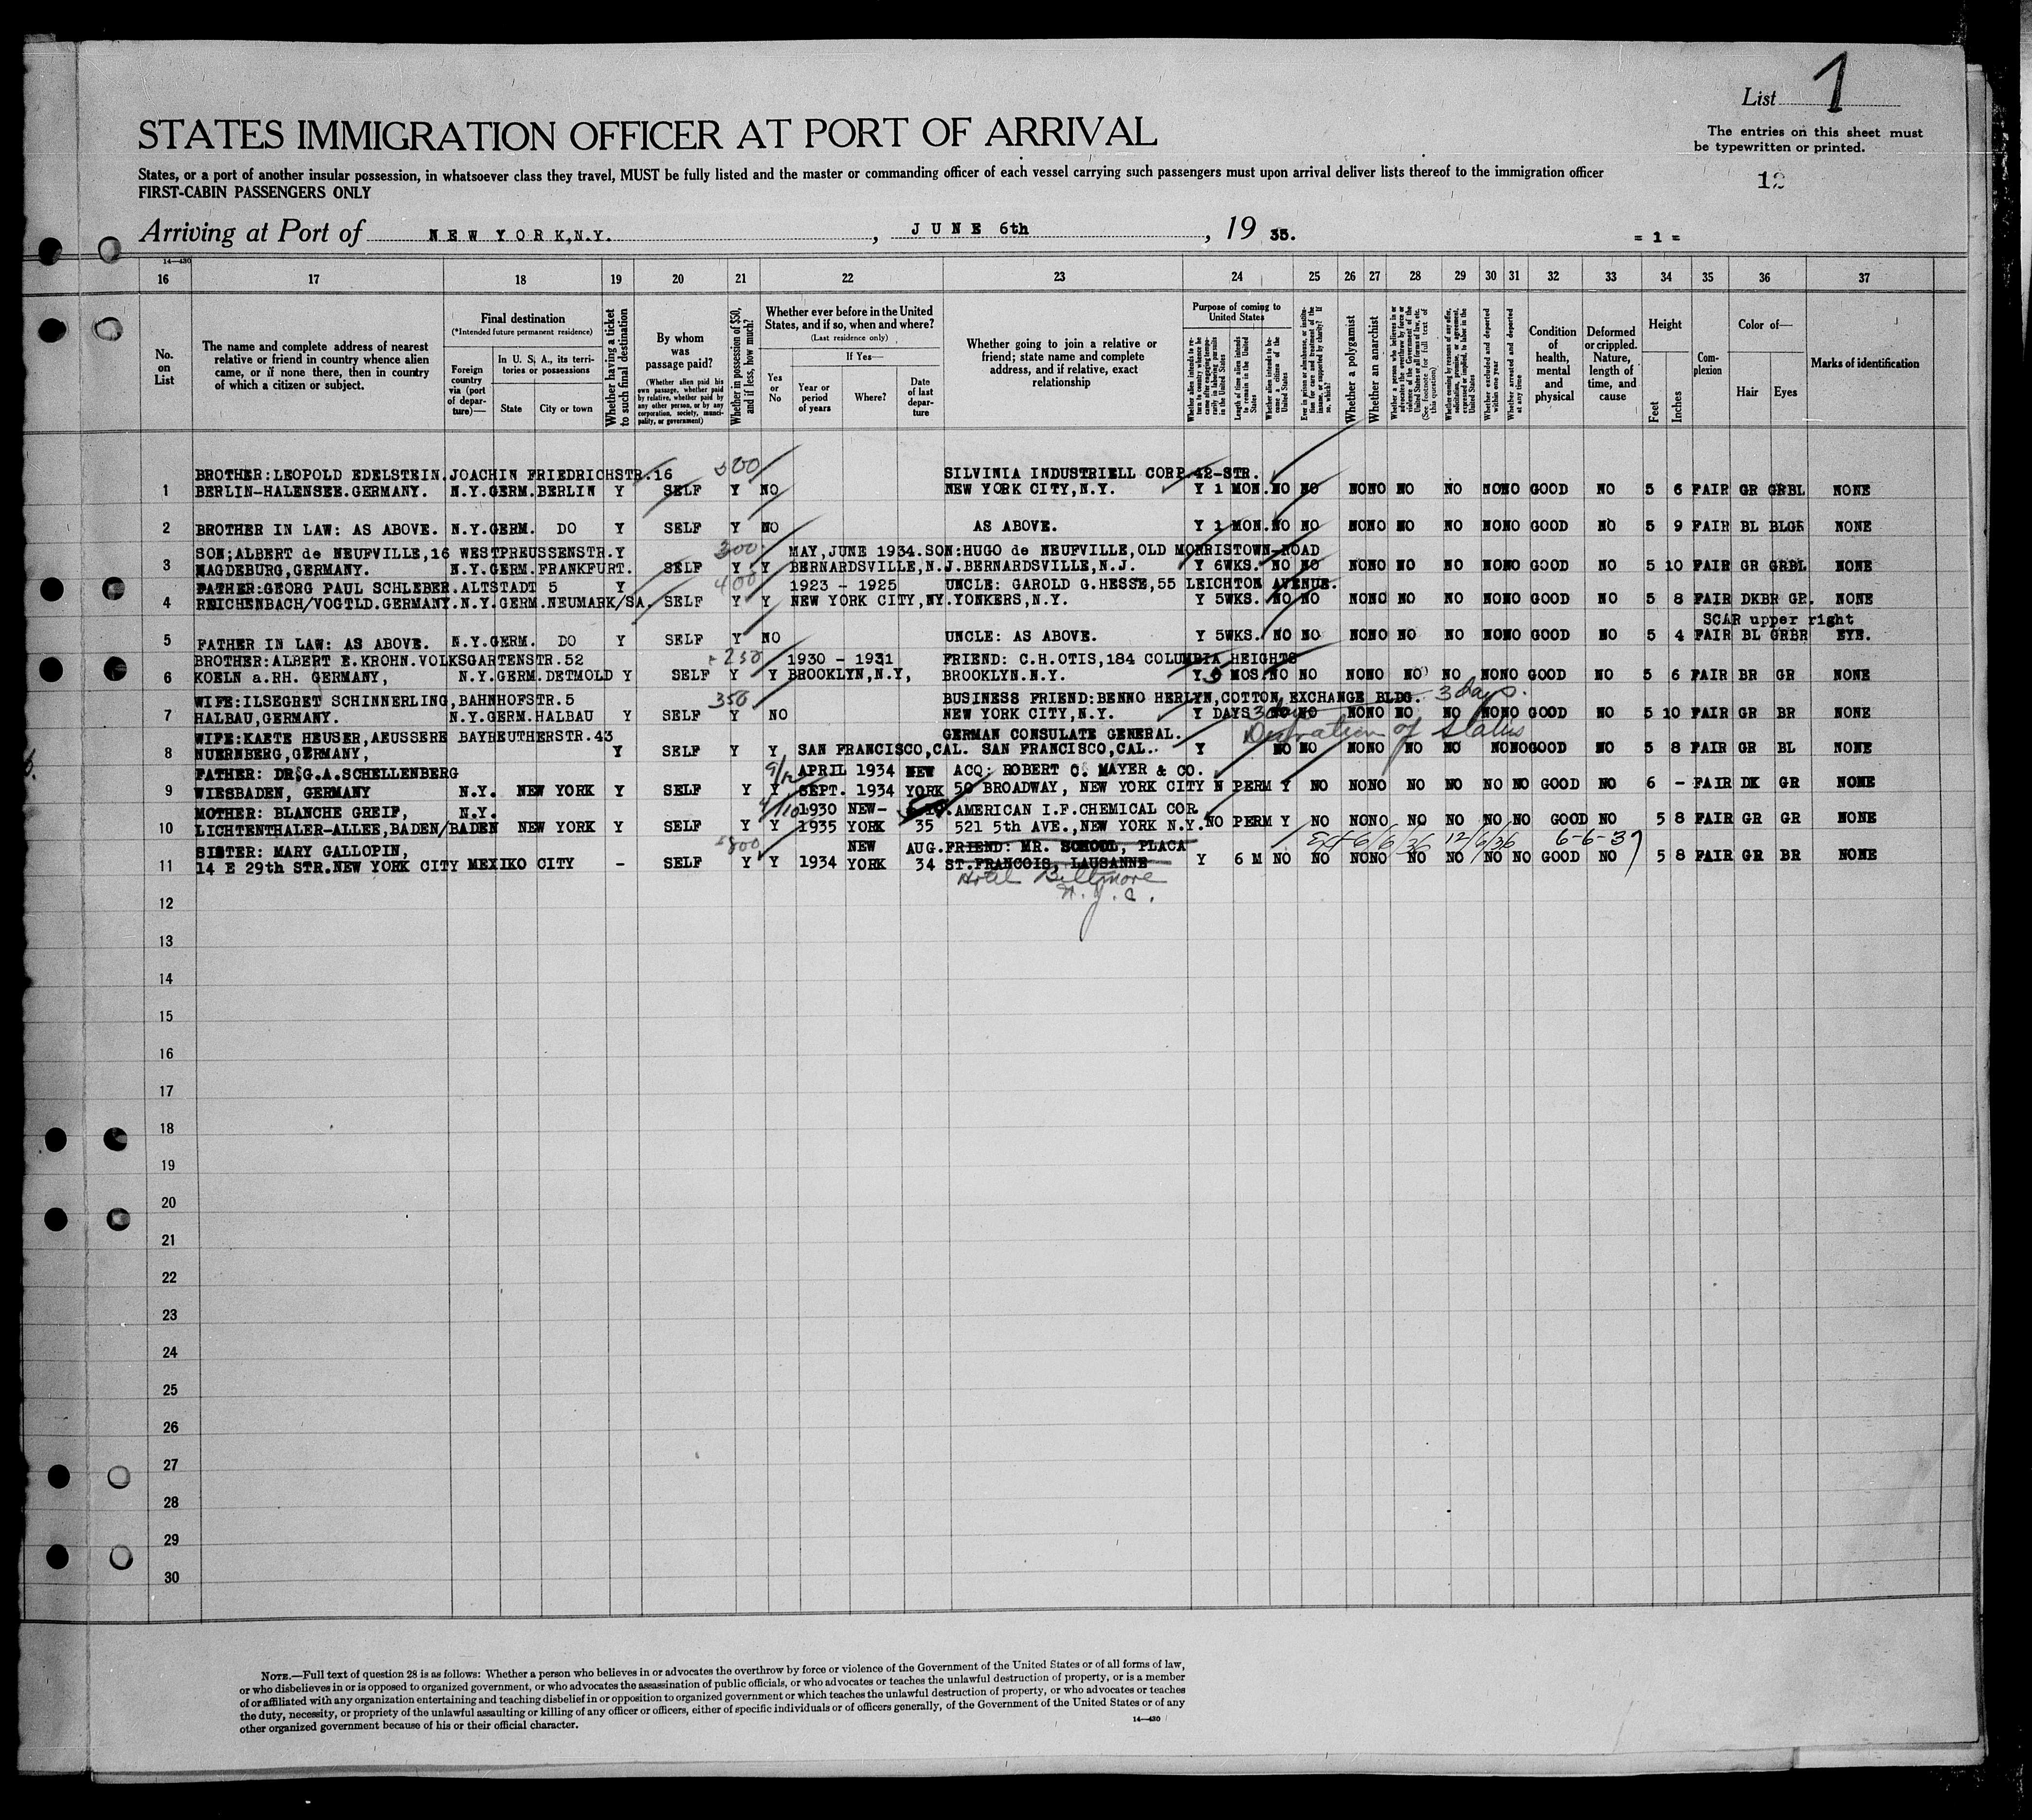 List 1
STATES IMMIGRATION OFFICER AT PORT OF ARRIVAL
The entries on this sheet must
be typewritten or printed.
States, or a port of another insular possession, in whatsoever class they travel, MUST be fully listed and the master or commanding officer of each vessel carrying such passengers must upon arrival deliver lists thereof to the immigration officer
FIRST-CABIN PASSENGERS ONLY
12
Arriving at Port of NEW YORK,N.Y. , JUNE 6th , 19 35.
= 1 =
14—430
16 17 18 19 20 21 22 23 24 25 26 27 28 29 30 31 32 33 34 35 36 37
No. on List
The name and complete address of nearest relative or friend in country whence alien came, or if none there, then in country of which a citizen or subject.
Final destination
(*Intended future permanent residence)
Foreign country via (port of departure)—
In U. S. A., its territories or possessions
State
City or town
Whether having a ticket to such final destination
By whom was passage paid?
(Whether alien paid his own passage, whether paid by relative, whether paid by any other person, or by any corporation, society, municipality, or government)
Whether in possession of $50, and if less, how much?
Whether ever before in the United States, and if so, when and where?
(Last residence only)
Yes or No
If Yes—
Year or period of years
Where?
Date of last departure
Whether going to join a relative or friend; state name and complete address, and if relative, exact relationship
Purpose of coming to United States
Whether alien intends to return to country whence he came after engaging temporarily in laboring pursuits in the United States
Length of time alien intends to remain in the United States
Whether alien intends to become a citizen of the United States
Ever in prison or almshouse, or institution for care and treatment of the insane, or supported by charity? If so, which?
Whether a polygamist
Whether an anarchist
Whether a person who believes in or advocates the overthrow by force or violence of the Government of the United States or all forms of law, etc. (See footnote for full text of this question)
Whether coming by reasons of any offer, solicitation, promise, or agreement, expressed or implied, to labor in the United States
Whether excluded and deported within one year
Whether arrested and deported at any time
Condition of health, mental and physical
Deformed or crippled. Nature, length of time, and cause
Height
Feet
Inches
Complexion
Color of—
Hair
Eyes
Marks of identification
BROTHER:LEOPOLD EDELSTEIN.JOACHIN FRIEDRICHSTR.16 500 SILVINIA INDUSTRIELL CORP.42-STR.
1 BERLIN-HALENSEE.GERMANY. N.Y.GERM.BERLIN Y SELF Y NO NEW YORK CITY,N.Y. Y 1 MON.NO NO NONO NO NO NONO GOOD NO 5 6 FAIR GR GRBL NONE
2 BROTHER IN LAW: AS ABOVE. N.Y.GERM. DO Y SELF Y NO AS ABOVE. Y 1 MON.NO NO NONO NO NO NONO GOOD NO 5 9 FAIR BL BLGR NONE
SON;ALBERT de NEUFVILLE,16 WESTPREUSSENSTR.Y 300 MAY,JUNE 1934.SON:HUGO de NEUFVILLE,OLD MORRISTOWN-ROAD
3 MAGDEBURG,GERMANY. N.Y.GERM.FRANKFURT. SELF Y Y BERNARDSVILLE,N.J.BERNARDSVILLE,N.J. Y 6WKS. NO NO NONO NO NO NONO GOOD NO 5 10 FAIR GR GRBL NONE
FATHER:GEORG PAUL SCHLEBER.ALTSTADT 5 Y 400 1923 - 1925 UNCLE: GAROLD G.HESSE,55 LEICHTON AVENUE.
4 REICHENBACH/VOGTLD.GERMANY.N.Y.GERM.NEUMARK/SA. SELF Y Y NEW YORK CITY,NY.YONKERS,N.Y. Y 5WKS. NO NO NONO NO NO NONO GOOD NO 5 8 FAIR DKBR GR. NONE
SCAR upper right
5 FATHER IN LAW: AS ABOVE. N.Y.GERM. DO Y SELF Y NO UNCLE: AS ABOVE. Y 5WKS. NO NO NONO NO NO NONO GOOD NO 5 4 FAIR BL GRBR EYE.
BROTHER:ALBERT E.KROHN.VOLKSGARTENSTR.52 250 1930 - 1931 FRIEND: C.H.OTIS,184 COLUMBIA HEIGHTS
6 KOELN a.RH. GERMANY, N.Y.GERM.DETMOLD Y SELF Y Y BROOKLYN,N.Y, BROOKLYN.N.Y. Y MOS.NO NO NONO NO NO NONO GOOD NO 5 6 FAIR BR GR NONE
WIFE:ILSEGRET SCHINNERLING,BAHNHOFSTR.5 350 BUSINESS FRIEND:BENNO HERLYN,COTTON EXCHANGE BLDG. 3 days.
7 HALBAU,GERMANY. N.Y.GERM.HALBAU Y SELF Y NO NEW YORK CITY,N.Y. Y DAYS NO NO NONO NO NO NONO GOOD NO 5 10 FAIR GR BR NONE
WIFE:KAETE HEUSER,AEUSSERE BAYREUTHERSTR.43 GERMAN CONSULATE GENERAL. Duration of Status
8 NUERNBERG,GERMANY, Y SELF Y Y SAN FRANCISCO,CAL. SAN FRANCISCO,CAL.. Y NO NO NONO NO NO NONO GOOD NO 5 8 FAIR GR BL NONE
FATHER: DR.G.A.SCHELLENBERG 9/12 APRIL 1934 NEW ACQ: ROBERT C. MAYER & CO.
9 WIESBADEN, GERMANY N.Y. NEW YORK Y SELF Y Y SEPT. 1934 YORK 50 BROADWAY, NEW YORK CITY N PERM Y NO NONO NO NO NO NO GOOD NO 6 - FAIR DK GR NONE
MOTHER: BLANCHE GREIF, N.Y. 4/10 1930 NEW- AMERICAN I.F.CHEMICAL COR.
10 LICHTENTHALER-ALLEE,BADEN/BADEN NEW YORK Y SELF Y Y 1935 YORK 35 521 5th AVE.,NEW YORK N.Y. NO PERM Y NO NONO NO NO NO NO GOOD NO 5 8 FAIR GR GR NONE
SISTER: MARY GALLOPIN, 800 NEW AUG.FRIEND: MR. SCHOOL, PLACA Ext 6/6/36 12/6/36 6-6-37
11 14 E 29th STR.NEW YORK CITY MEXIKO CITY - SELF Y Y 1934 YORK 34 ST.FRANCOIS, LAUSANNE Y 6 M NO NO NONO NO NO NO NO GOOD NO 5 8 FAIR GR BR NONE
Hotel Biltmore
N.Y.C.
12
13
14
15
16
17
18
19
20
21
22
23
24
25
26
27
28
29
30
NOTE.—Full text of question 28 is as follows: Whether a person who believes in or advocates the overthrow by force or violence of the Government of the United States or of all forms of law,
or who disbelieves in or is opposed to organized government, or who advocates the assassination of public officials, or who advocates or teaches the unlawful destruction of property, or is a member
of or affiliated with any organization entertaining and teaching disbelief in or opposition to organized government or which teaches the unlawful destruction of property, or who advocates or teaches
the duty, necessity, or propriety of the unlawful assaulting or killing of any officer or officers, either of specific individuals or of officers generally, of the Government of the United States or of any
other organized government because of his or their official character.
14—430